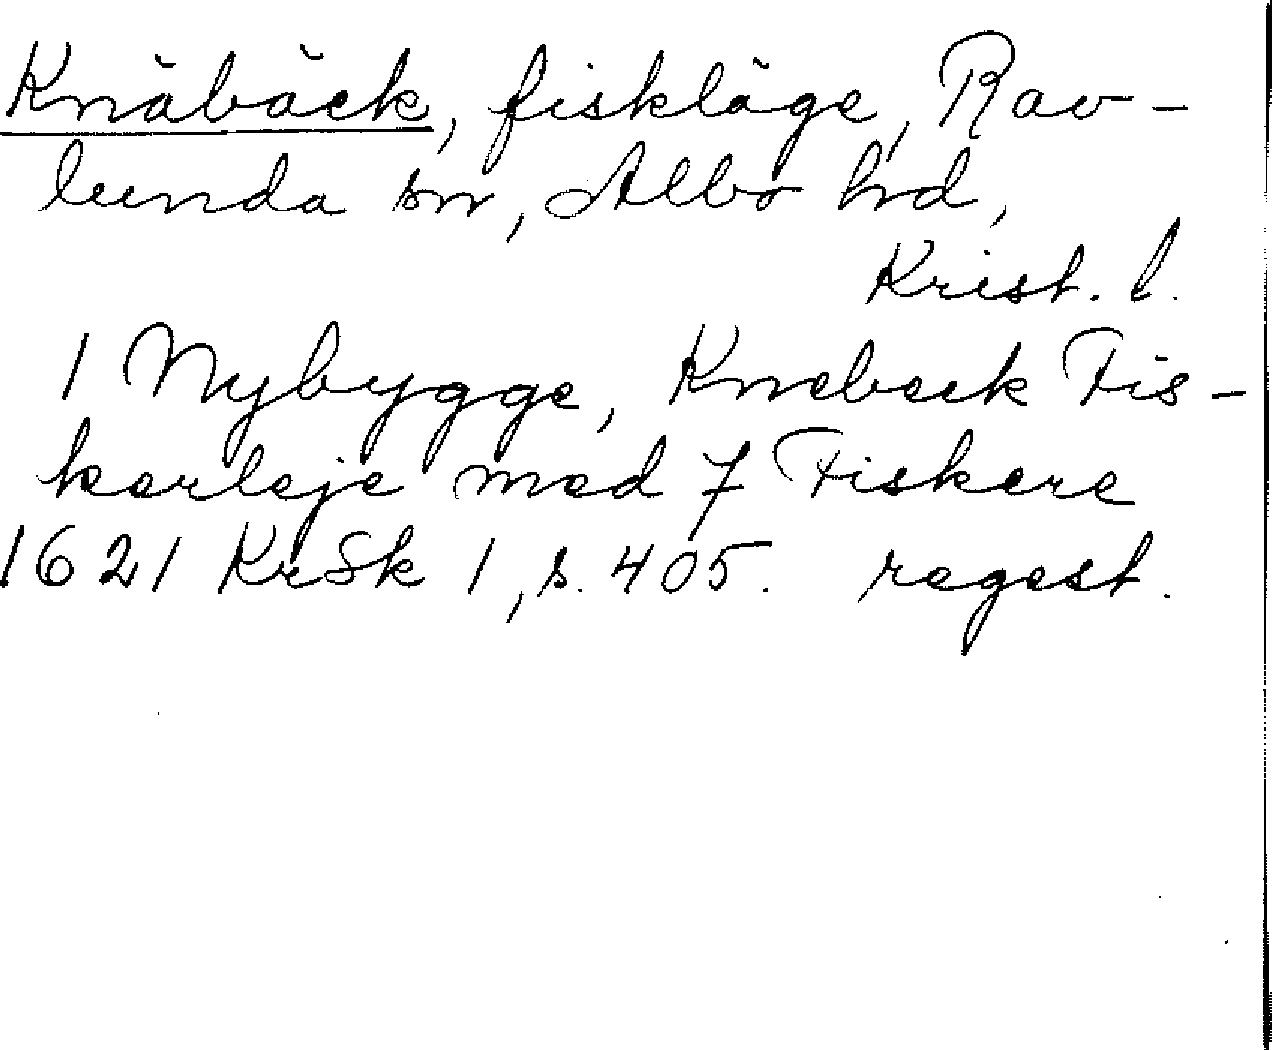 Knäbäck, fiskläge, Rav-
lunda sn, Albo hd,
Krist. l.
1 Nybygge, Knebeck Fis-
kerleje med 7 Fiskere
1621 KrSk 1, s. 405. regest.